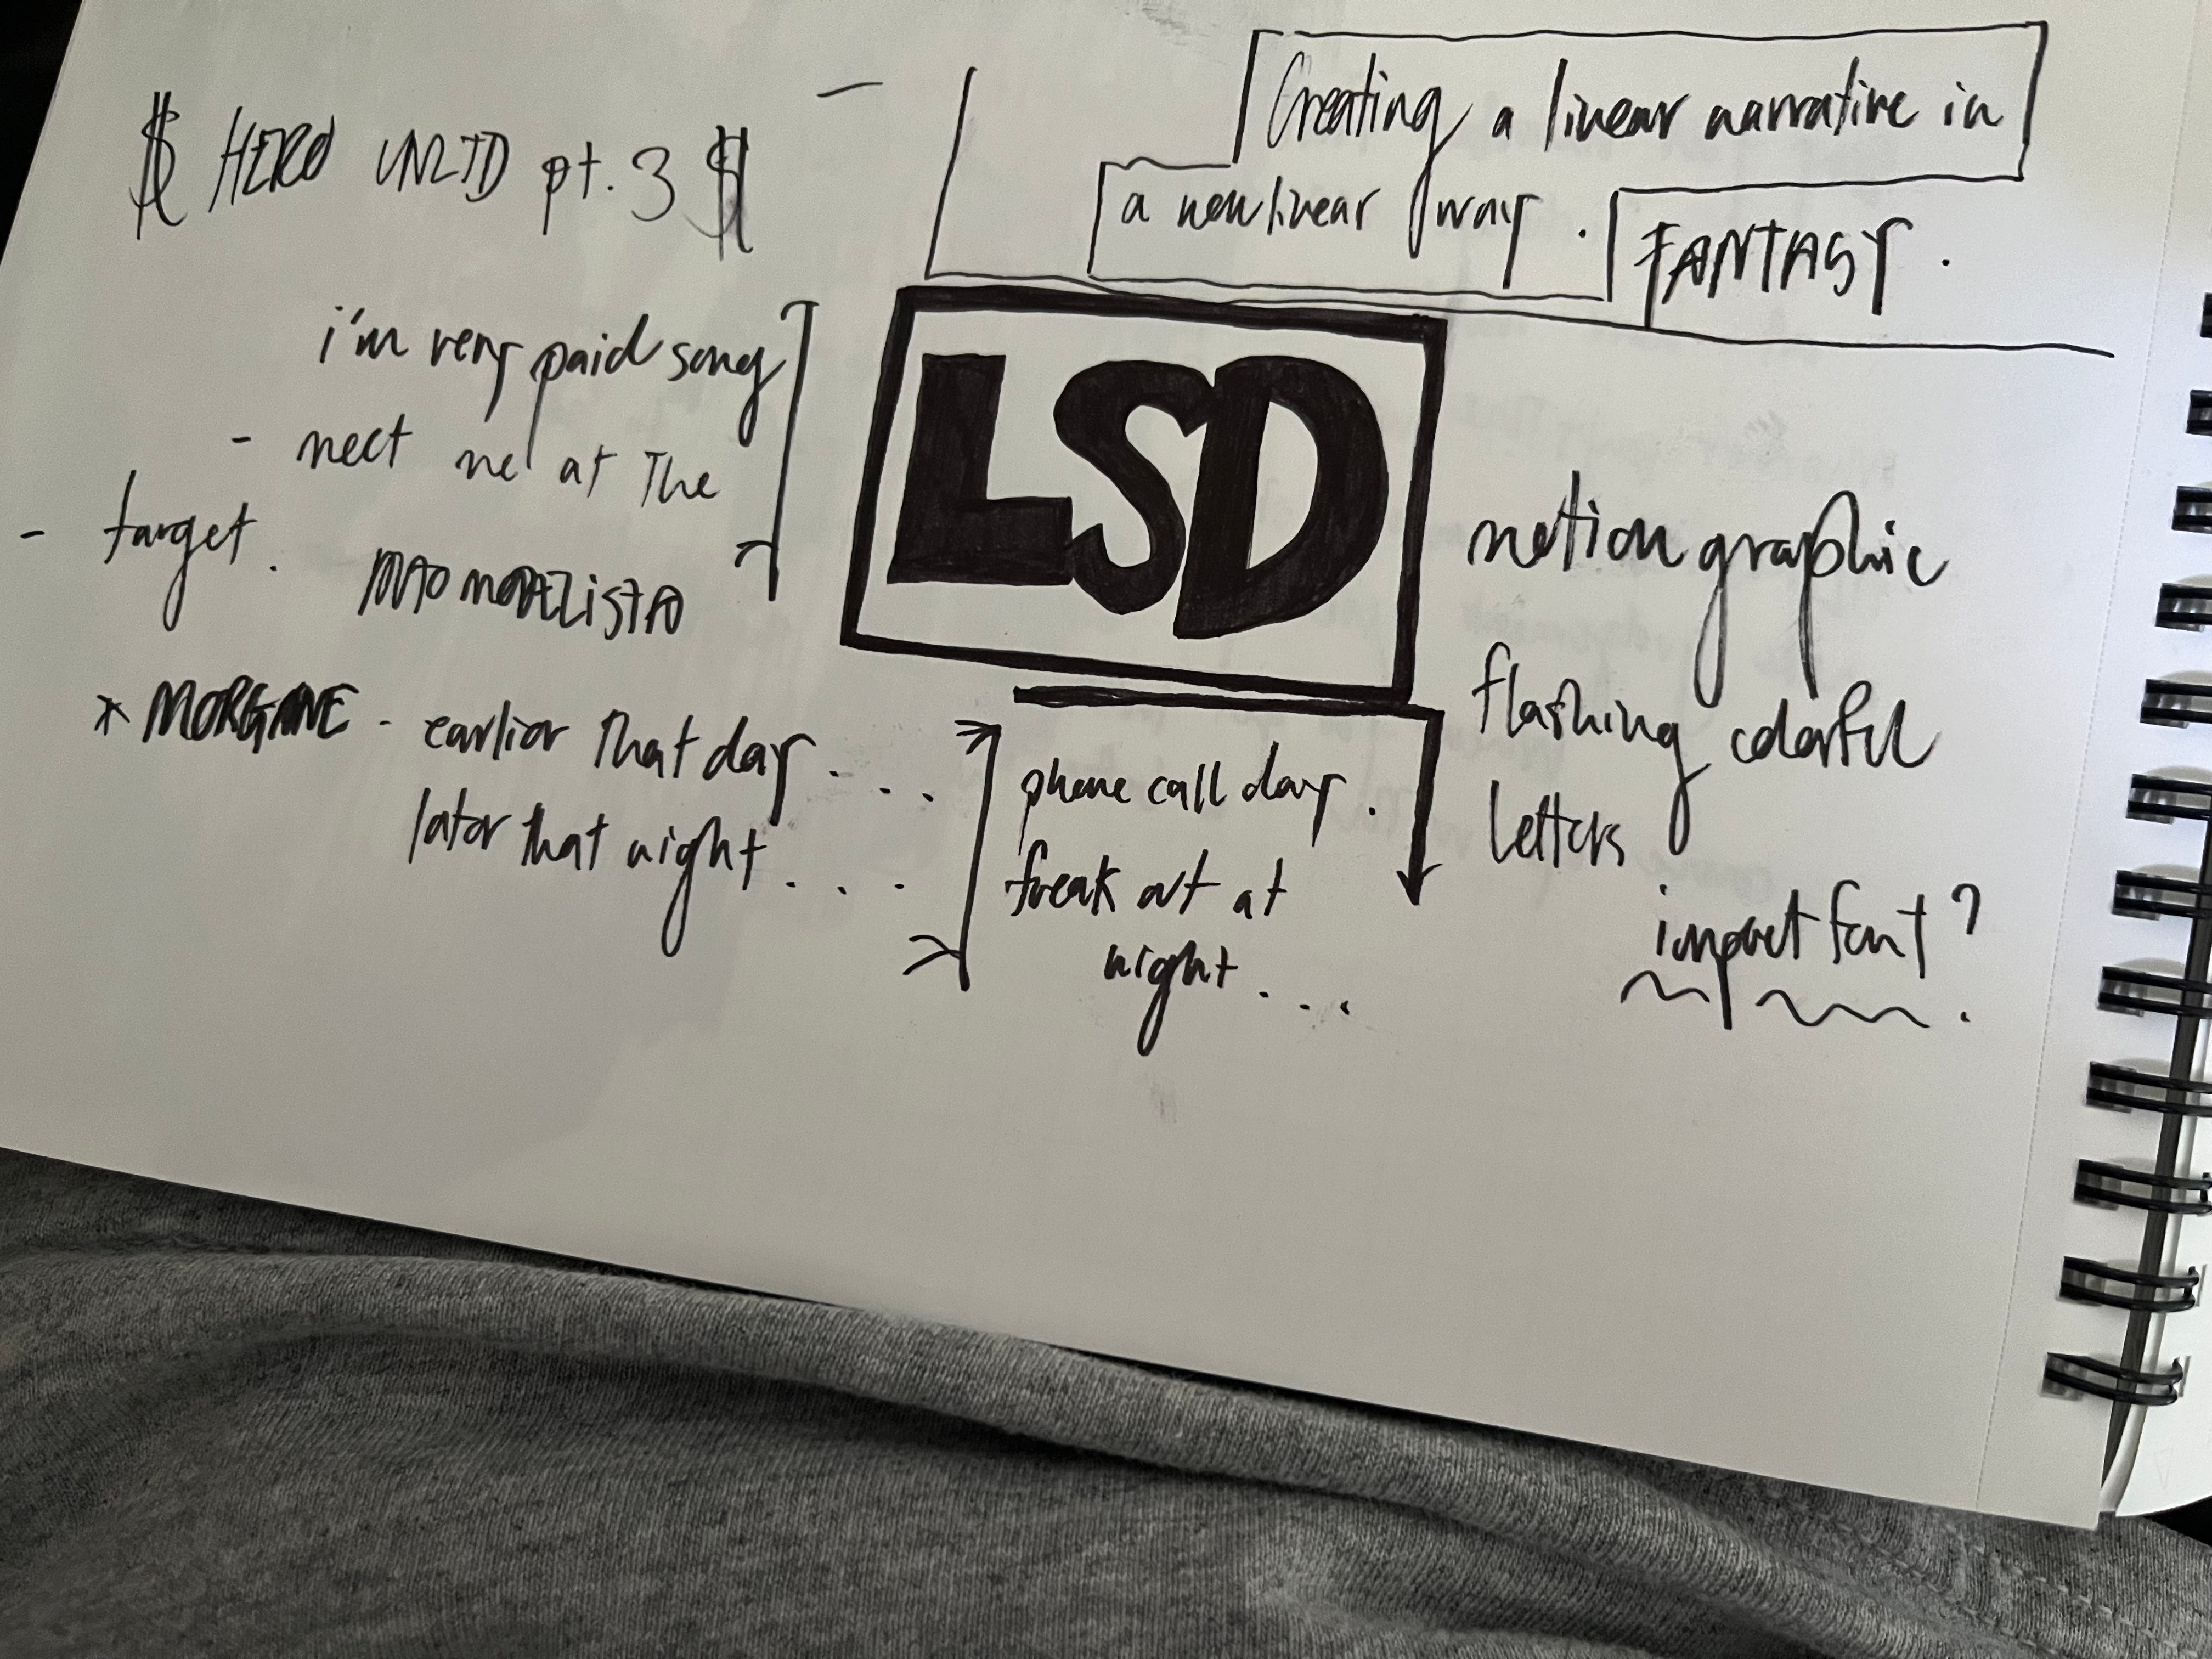 $ HERO UNLTD pt. 3 $
i'm very paid song
- meet me at The
- target.
MAO MORALISTA
* MORGANE - earlier that day . . .
later that night . . . .
Creating a linear narrative in
a nonlinear way .
FANTASY .
LSD
phone call day .
freak out at
night . . .
motion graphic
flashing colorful
letters
impact font?